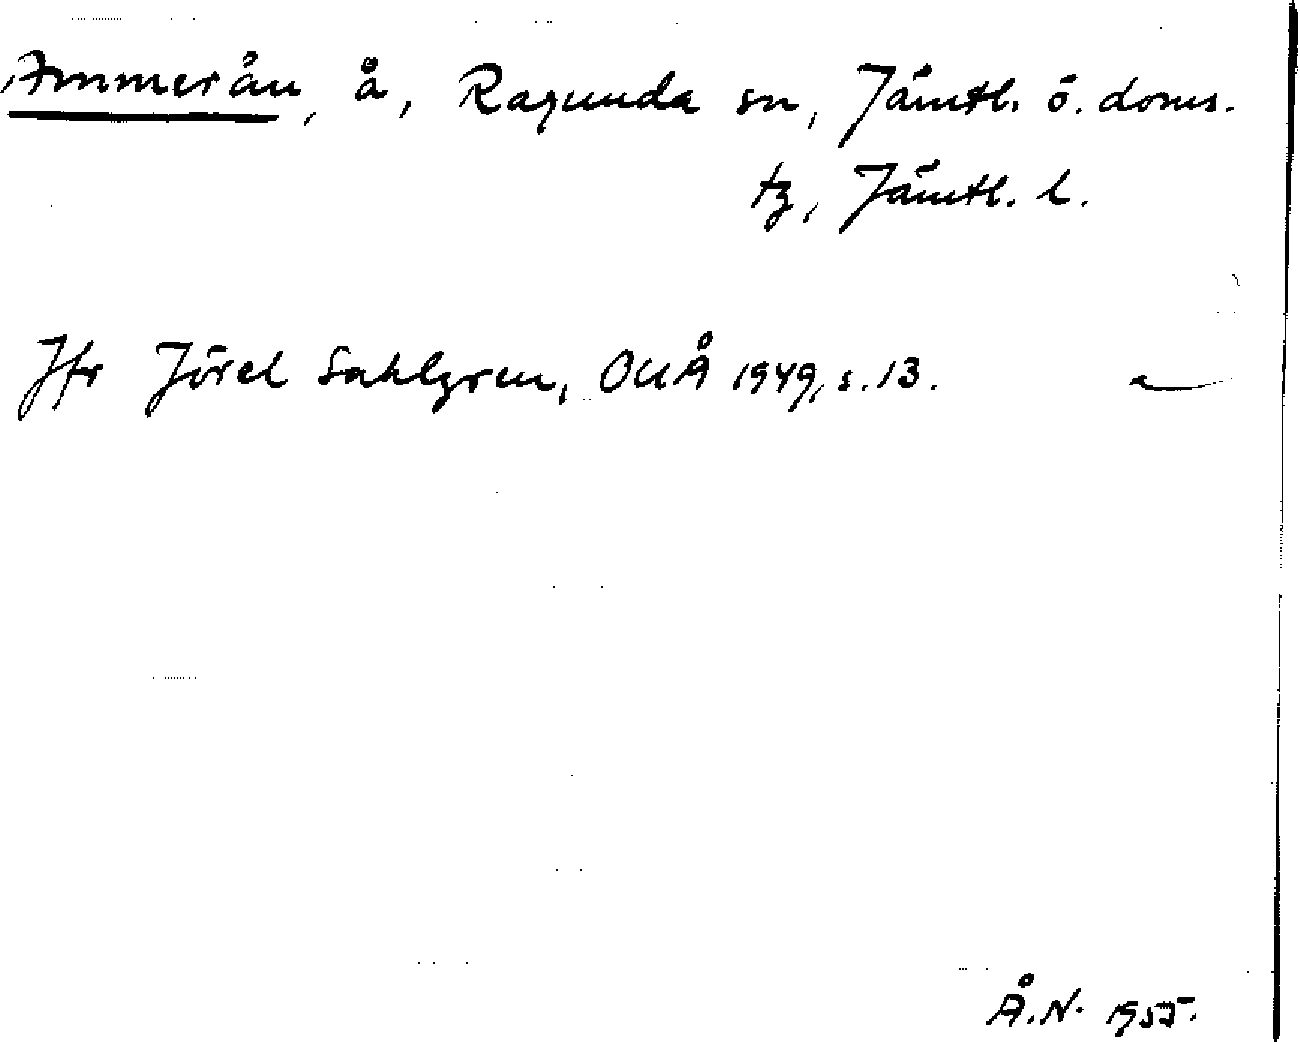 Ammerån, å, Ragunda sn, Jämtl. ö. doms.
tg, Jämtl. l.
Jfr Jöran Sahlgren, OUÅ 1949, s. 13.
Å.N. 1955.